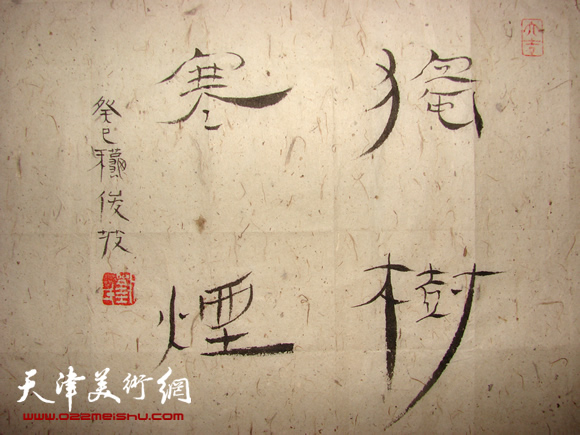 獨樹
寒煙
癸巳穐俊坡
天津美術網
www.022meishu.com